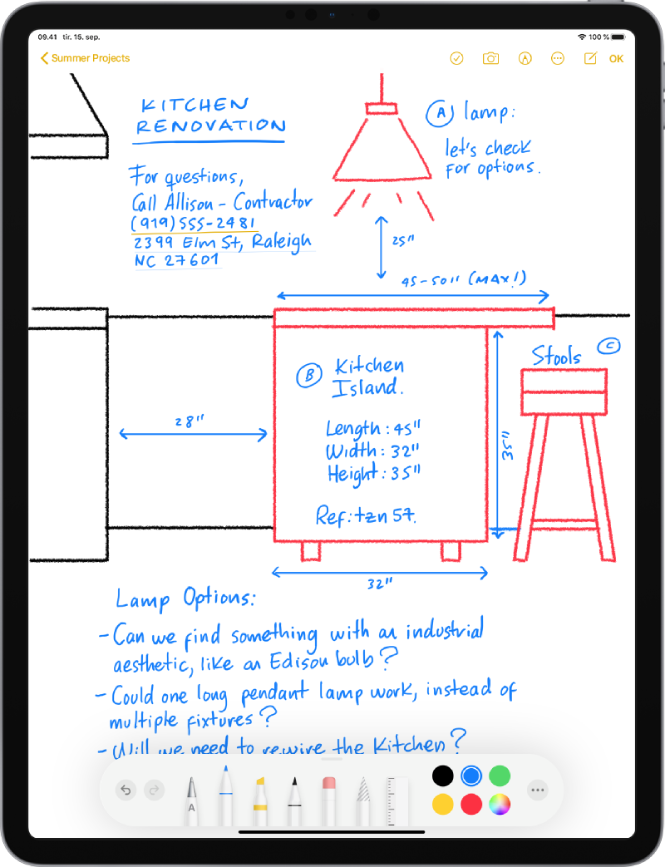 09.41 tir. 15. sep.
100 %
Summer Projects
OK
KITCHEN
RENOVATION
A lamp:
let's check
for options.
For questions,
Call Allison - Contractor
(919) 555-2481
2399 Elm St, Raleigh
NC 27601
25"
45-50" (MAX!)
B Kitchen
Island.
Stools C
28"
Length: 45"
Width: 32"
Height: 35"
35"
Ref: tzn 57.
32"
Lamp Options:
- Can we find something with an industrial
aesthetic, like an Edison bulb?
- Could one long pendant lamp work, instead of
multiple fixtures?
- Will we need to rewire the Kitchen?
A